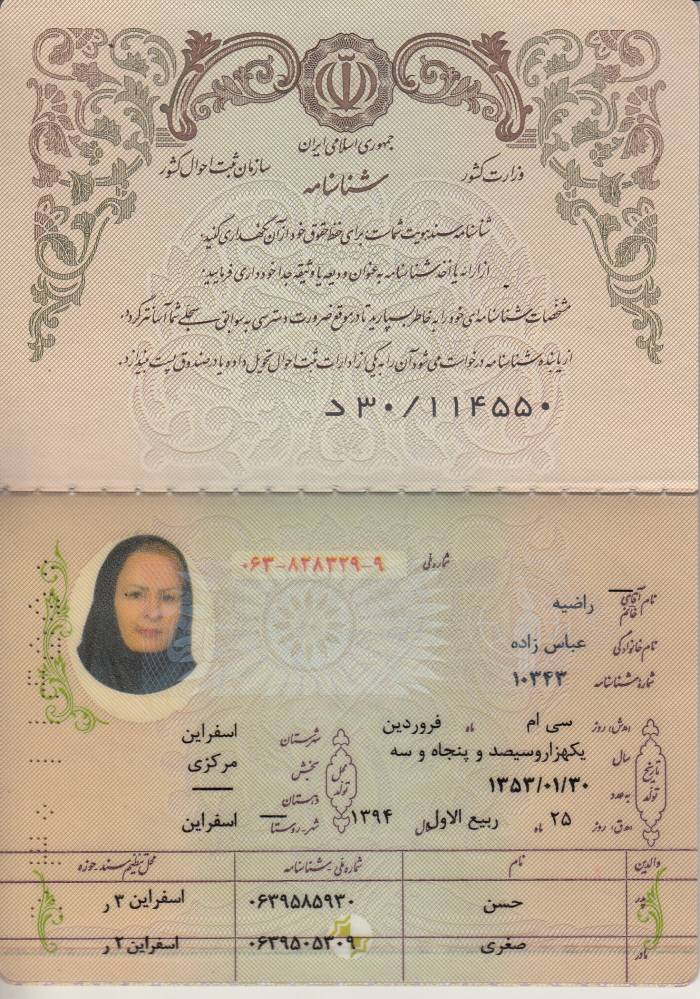 جمهوری اسلامی ایران
وزارت کشور
سازمان ثبت احوال کشور
شناسنامه
شناسنامه سند هویت شماست برای حفظ حقوق خود از آن نگهداری کنید.
از ارائه یا اخذ شناسنامه به عنوان ودیعه یا وثیقه جداً خودداری فرمایید.
مشخصات شناسنامه‌ای خود را به خاطر بسپارید تا در موقع ضرورت دسترسی به سوابق سجلی شما آسانتر گردد.
از یابنده شناسنامه درخواست می‌شود آن را به یکی از ادارات ثبت احوال تحویل داده یا در صندوق پست بیندازد.
د ۳۰/۱۱۴۵۵۰
شماره ملی ۰۶۳-۸۲۸۳۲۹-۹
نام آقای خانم راضیه
نام خانوادگی عباس زاده
شماره شناسنامه ۱۰۳۴۳
تاریخ تولد
ه‍.ش. روز سی ام ماه فروردین
سال یکهزاروسیصد و پنجاه و سه
به عدد ۱۳۵۳/۰۱/۳۰
ه‍.ق. روز ۲۵ ماه ربیع الاول سال ۱۳۹۴
محل تولد
شهرستان اسفراین
بخش مرکزی
دهستان ——
شهر-روستا اسفراین
والدین نام شماره ملی-شناسنامه محل تنظیم سند-حوزه
پدر حسن ۰۶۳۹۵۸۵۹۳۰ اسفراین ۳ ر
مادر صغری ۰۶۳۹۵۰۵۳۰۹ اسفراین ۲ ر